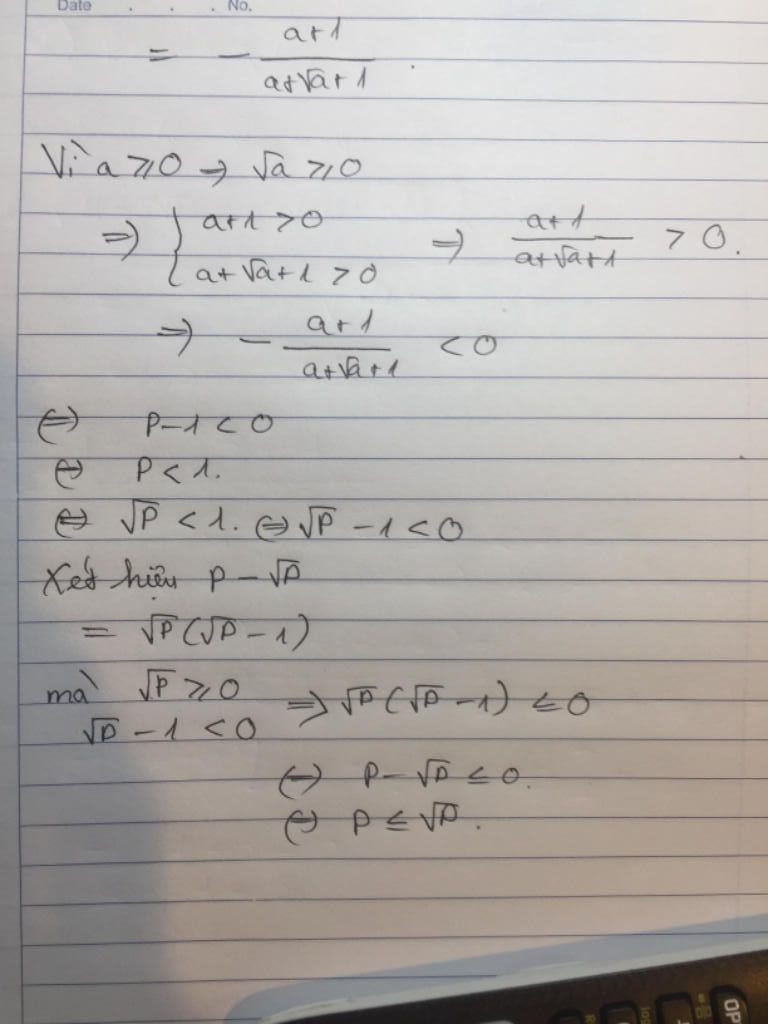 Date . . . No.
= - \frac{a+1}{a+√a+1}.
Vì a ≥ 0 → √a ≥ 0
⇒ { a+1 > 0 ; a+√a+1 > 0 ⇒ \frac{a+1}{a+√a+1} > 0.
⇒ - \frac{a+1}{a+√a+1} < 0
⇔ P-1 < 0
⇔ P < 1.
⇔ √P < 1. ⇔ √P - 1 < 0
Xét hiệu P - √P
= √P (√P - 1)
mà √P ≥ 0
√P - 1 < 0 ⇒ √P (√P - 1) ≤ 0
⇔ P - √P ≤ 0.
⇔ P ≤ √P.
OP